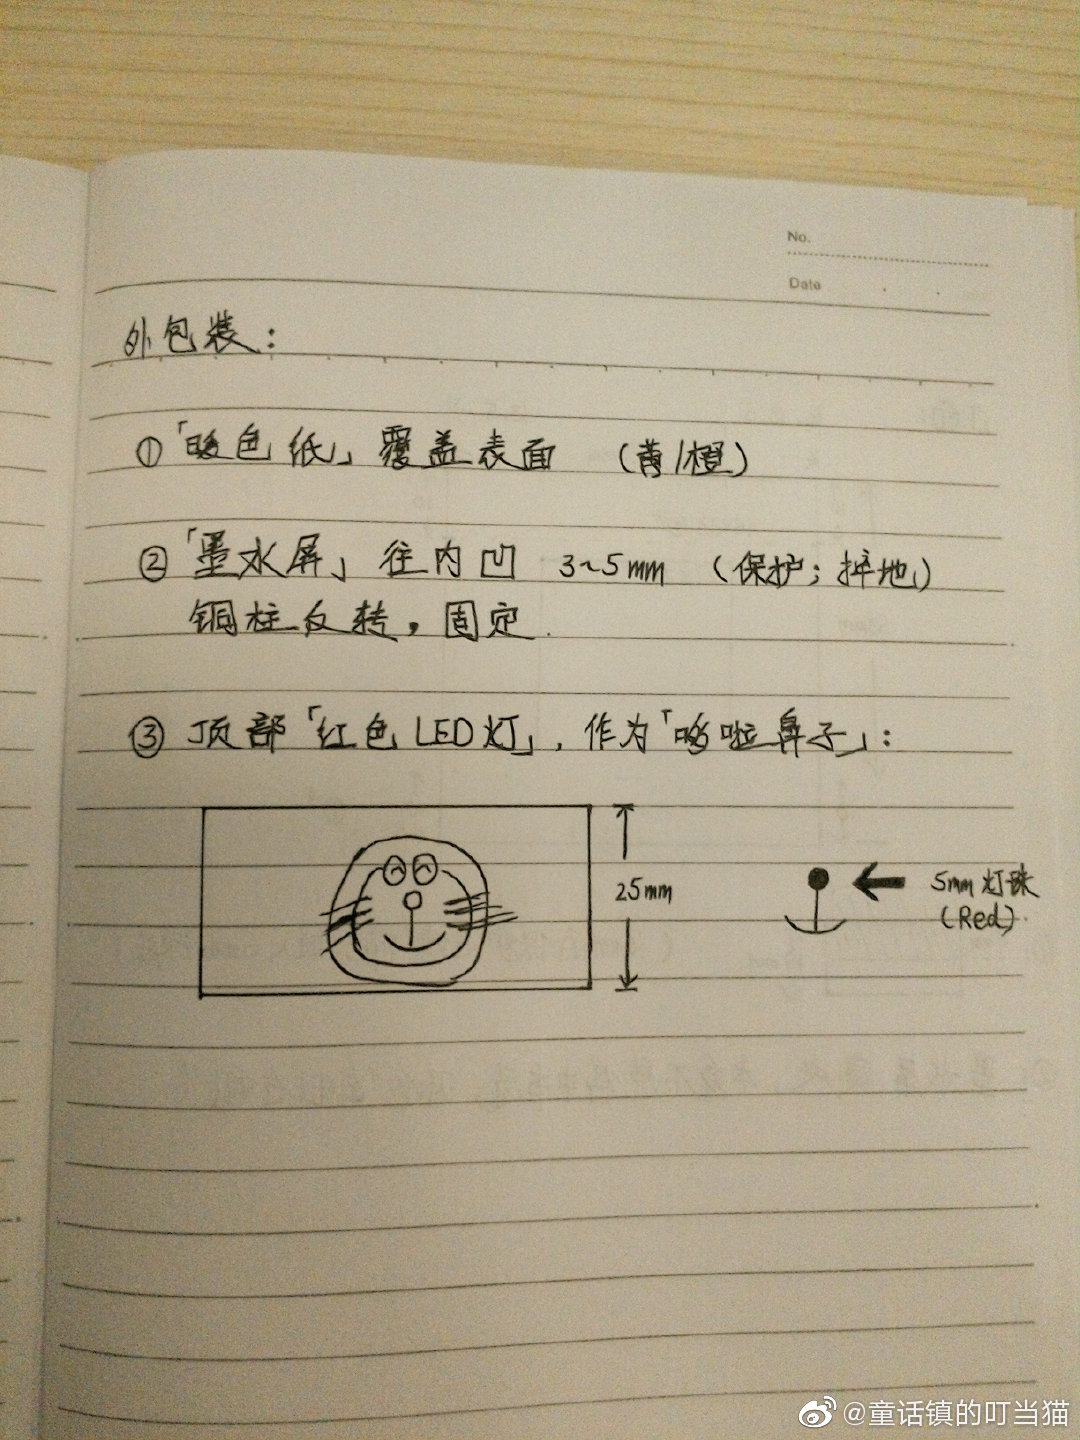 No.
Date
外包装:
①「暖色纸」覆盖表面 (黄/橙)
②「墨水屏」往内凹 3~5mm (保护;掉地)
铜柱反转,固定.
③ 顶部「红色LED灯」,作为「哆啦鼻子」:
25mm
5mm灯珠
(Red).
@童话镇的叮当猫